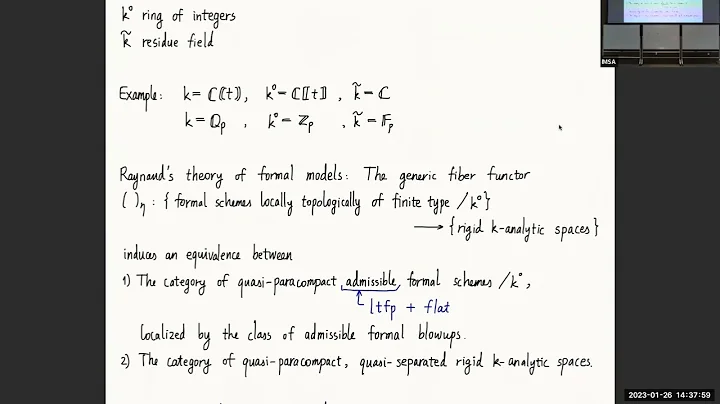 k° ring of integers
k̃ residue field
Example: k = ℂ((t)), k° = ℂ[[t]], k̃ = ℂ
k = ℚp , k° = ℤp , k̃ = 𝔽p
Raynaud's theory of formal models: The generic fiber functor
( )η : { formal schemes locally topologically of finite type /k°}
⟶ {rigid k-analytic spaces}
induces an equivalence between
1) The category of quasi-paracompact admissible formal schemes /k°,
ltfp + flat
localized by the class of admissible formal blowups.
2) The category of quasi-paracompact, quasi-separated rigid k-analytic spaces.
IMSA
2023-01-26 14:37:59